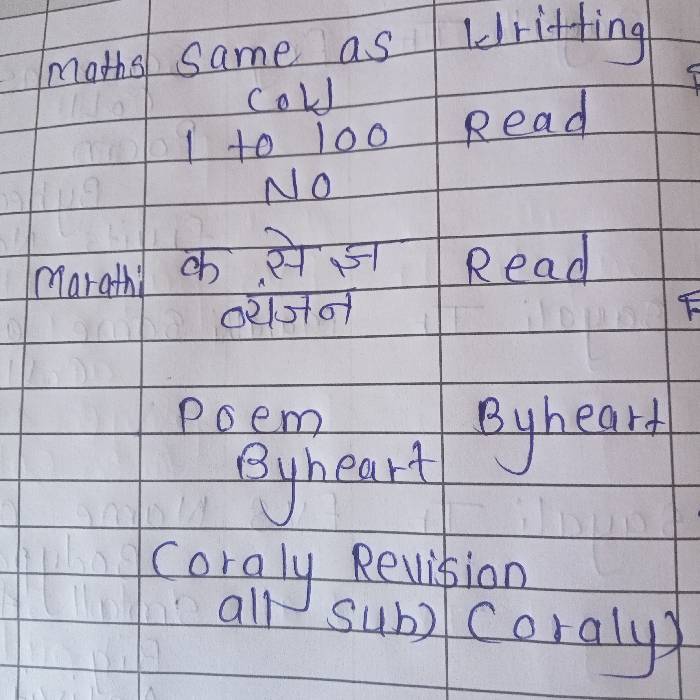 Maths Same as Writting
CoW
1 to 100 Read
NO
Marathi क से ज्ञ Read
व्यंजन
Poem Byheart
Byheart
Coraly Revision
all sub) Coraly)